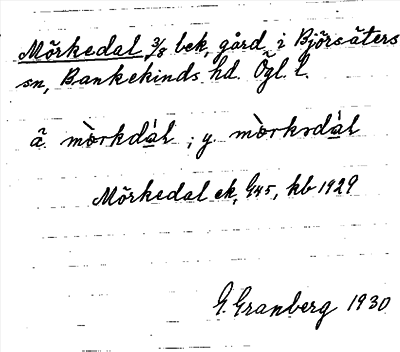 Mörkedal 3/8 bek, gård i Björsäters
sn, Bankekinds hd. Ögl. l.
ä. mòrkdál ; y. mòrksdál
Mörkedal ek, G45, kb 1929
G. Granberg 1930